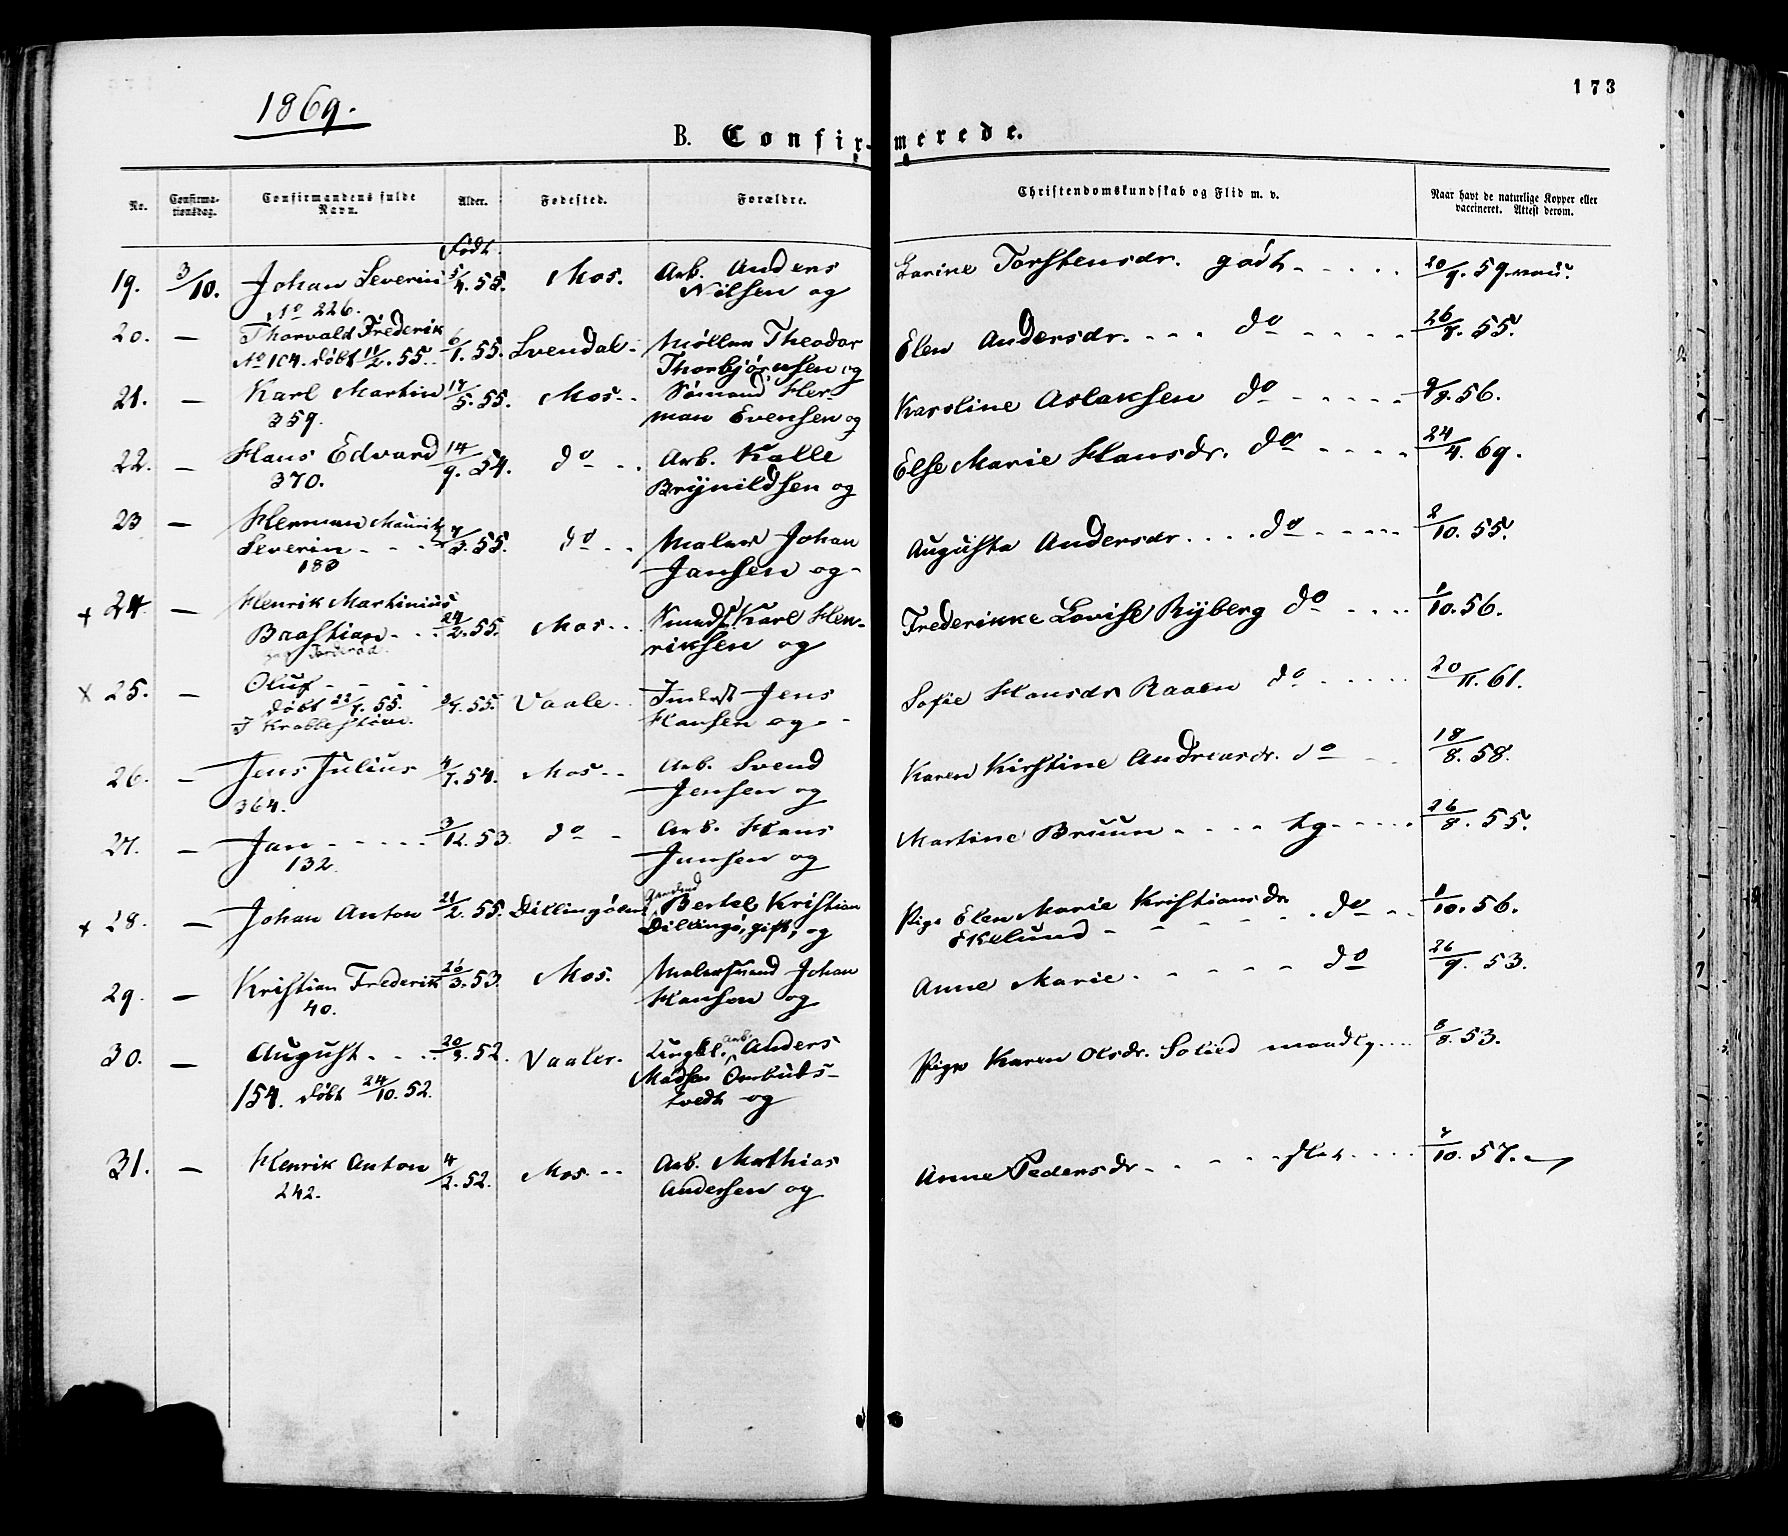 1869.
173
B. Confirmerede.
Nr. Confirmationsdag. Confirmandens fulde Navn. Alder. Fødested. Forældre. Christendomskundskab og Flid m. v. Naar havt de naturlige Kopper eller vaccineret. Attest derom.
Født
19. 3/10. Johan Severin 5/4.55. Mos. Arb. Anders Larine Torstensdr. godt 20/9.59
No 226. Nilsen og
20. — Thorvald Frederik 6/1.55. Svendal Møller Theodor Elen Andersdr. do 26/8.55.
No 104. døbt 11/2.55. Thorbjørnsen og
21. — Karl Martin 17/5.55. Mos. Sømand Her- Karoline Aslaksen do 9/8.56.
359. man Evensen og
22. — Hans Edvard 14/9.54. do Arb. Kalle Else Marie Hansdr. do 24/4.69.
370. Brynildsen og
23 — Herman Maurits 7/3.55. do Maler Johan Augusta Andersdr. do 2/10.55.
Severin Jansen og
183
+ 24. — Henrik Martinius 24/2.55. Mos. Smeds. Karl Hen- Frederikke Lovise Ryberg do 1/10.56.
Bastian riksen og
x 25. — Oluf 9/7.55. Vaale Inderst Jens Sofie Hansdr Raaen do 20/11.61.
døbt 22/7.55. Hansen og
I
26. — Jens Julius 4/7.54. Mos Arb. Svend Karen Kirstine Andreasdr. do 18/8.58.
364. Jensen og
27. — Jan 3/12.53. do Arb. Hans Martine Bruun tg. 26/8.55.
132. Jansen og
+ 28. — Johan Anton 21/2.55. Dillingøen Bertel Kristian Pige Elen Marie Kristiansdr do 1/10.56.
Dillingø, gift, og Ekelund
29. — Kristian Frederik 26/3.53. Mos. Malersvend Johan Anne Marie do 26/9.53.
40. Hansen og
30. — August 20/9.52. Vaaler. Ungkl. Arb. Anders Pige Karen Olsdr. Solied maadlg. 8/8.53.
154. døbt 24/10.52. Madsen Ombuds-
tvedt og
31. — Henrik Anton 4/2.52. Mos Arb. Mathias Anne Pedersdr. 7/10.57.
242. Andersen og